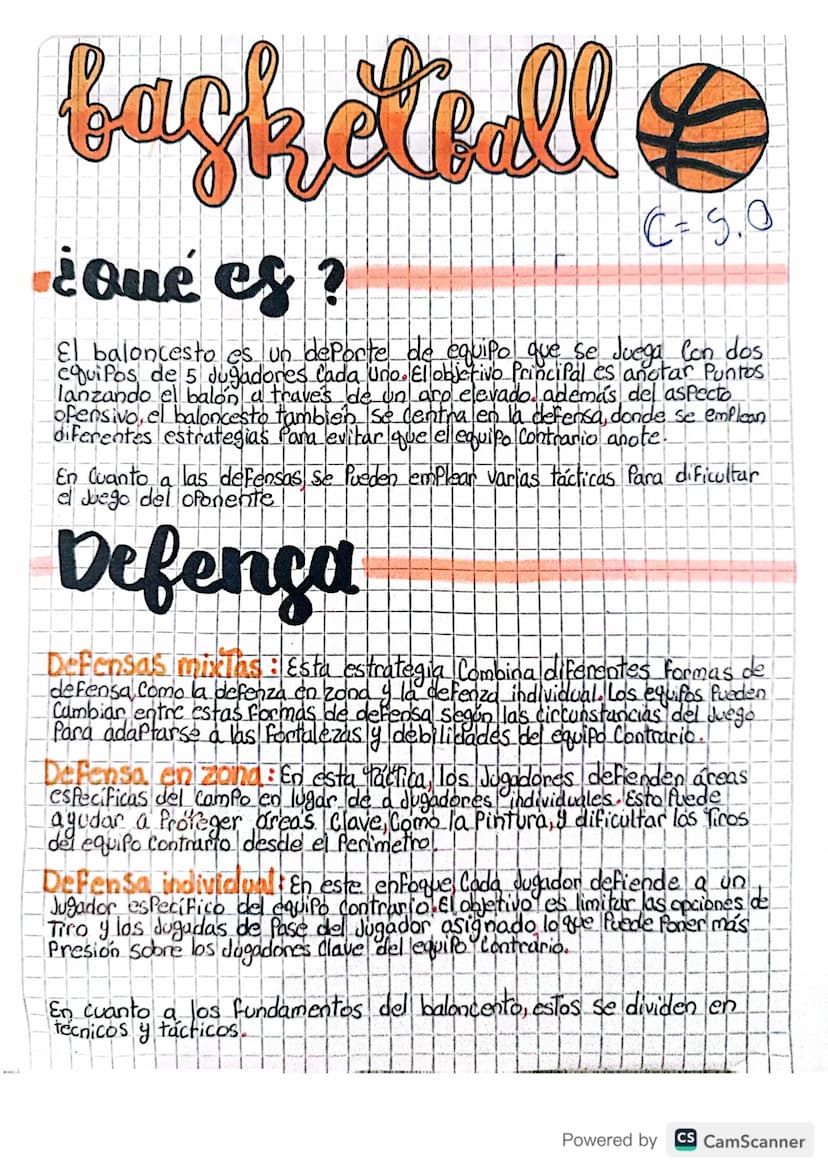 basketball
C = 5.0
¿Qué es?
El baloncesto es un deporte de equipo que se juega con dos
equipos de 5 jugadores cada uno. El objetivo principal es anotar puntos
lanzando el balón a través de un aro elevado. además del aspecto
ofensivo, el baloncesto también se centra en la defensa, donde se emplean
diferentes estrategias para evitar que el equipo contrario anote.
En cuanto a las defensas, se pueden emplear varias tácticas para dificultar
el juego del oponente
Defensa
Defensas mixtas: Esta estrategia combina diferentes formas de
defensa, como la defenza en zona y la defenza individual. Los equipos pueden
cambiar entre estas formas de defensa según las circunstancias del juego
para adaptarse a las fortalezas y debilidades del equipo contrario.
Defensa en zona: En esta táctica, los jugadores defienden áreas
específicas del campo en lugar de a jugadores individuales. Esto puede
ayudar a proteger áreas clave, como la pintura, y dificultar los tiros
del equipo contrario desde el perímetro.
Defensa individual: En este enfoque, cada jugador defiende a un
jugador específico del equipo contrario. El objetivo es limitar las opciones de
tiro y las jugadas de pase del jugador asignado, lo que puede poner más
presión sobre los jugadores clave del equipo contrario.
En cuanto a los fundamentos del baloncento, estos se dividen en
técnicos y tácticos.
Powered by CS CamScanner